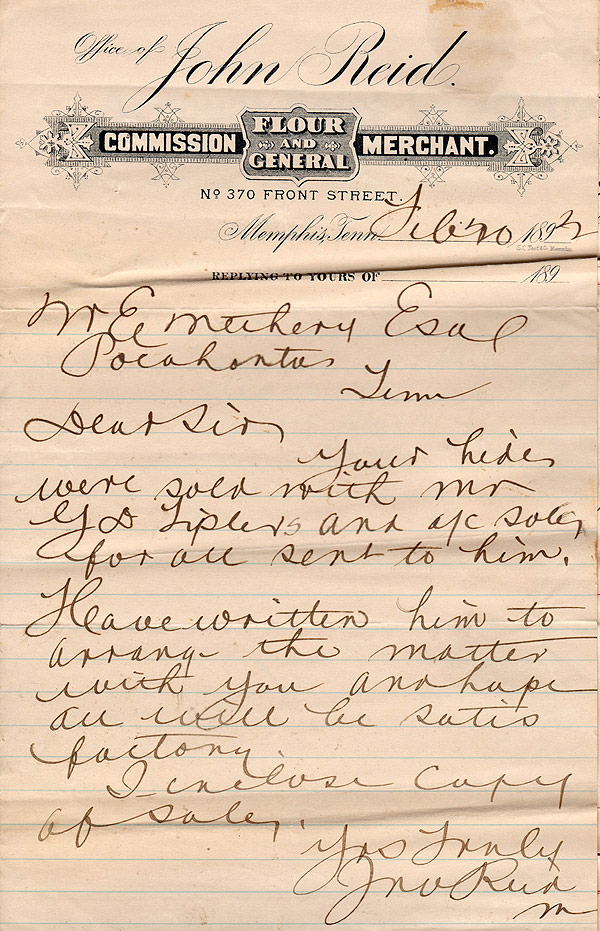 Office of
John Reid.
COMMISSION FLOUR AND GENERAL MERCHANT.
No 370 FRONT STREET.
Memphis, Tenn. Feb 20 1892
REPLYING TO YOURS OF 189
Mr E Esq
Pocahontas
Tenn
Dear Sir
Your hides
were sold with Mr
G D Tiplers and a/c sales
for all sent to him.
Have written him to
arrange the matter
with you and hope
all will be satis
factory.
I inclose copy
of sales.
Yrs Truly
Jno Reid
m